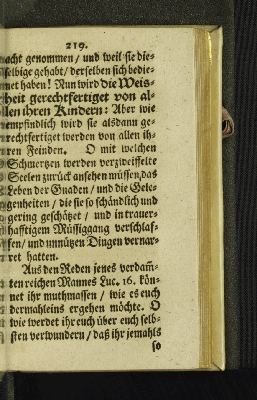 219.
acht genommen / und weil sie die-
selbige gehabt / derselben sich bedie-
net haben! Nun wird die Weis-
heit gerechtfertiget von al-
len ihren Kindern: Aber wie
empfindlich wird sie alsdann ge-
rechtfertiget werden von allen ih-
ren Feinden. O mit welchen
Schmertzen werden verzweiffelte
Seelen zurück ansehen müssen, das
Leben der Gnaden / und die Gele-
genheiten / die sie so schändlich und
gering geschätzet / und in trauer-
hafftigem Müssiggang verschlaf-
fen / und unnützen Dingen vernar-
ret hatten.
Aus den Reden jenes verdam̃-
ten reichen Mannes Luc. 16. kön-
net ihr muthmassen / wie es euch
dermahleins ergehen möchte. O
wie werdet ihr euch über euch selb-
sten verwundern / daß ihr jemahls
so